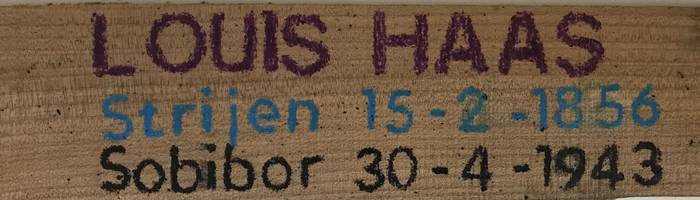 LOUIS HAAS
Strijen 15-2-1856
Sobibor 30-4-1943